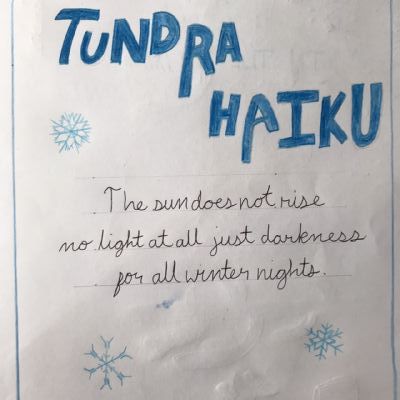 TUNDRA
HAIKU
The sun does not rise
no light at all just darkness
for all winter nights.